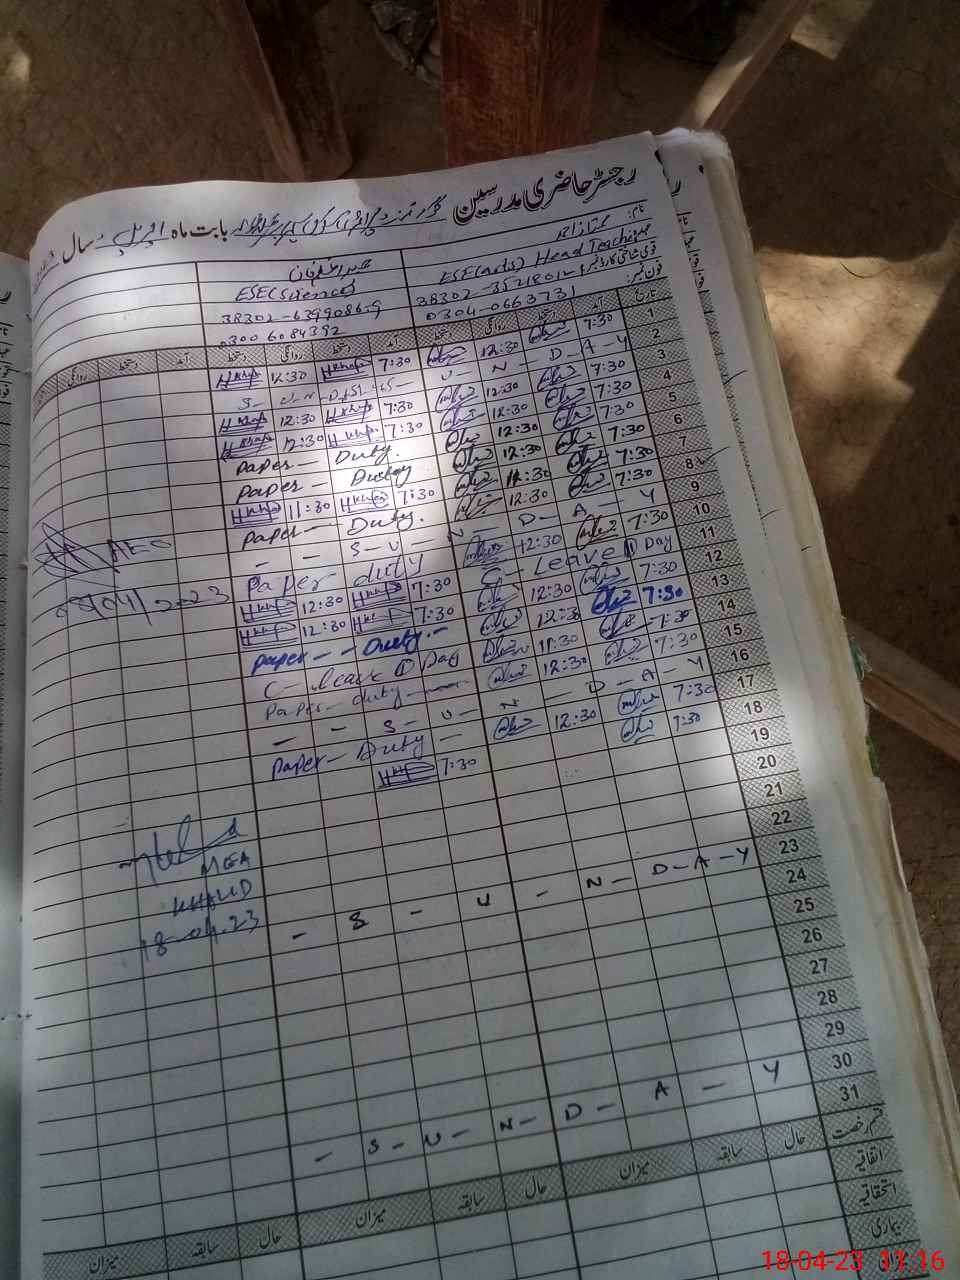 رجسٹر حاضری مدرسین
بابت ماہ اپریل سال
نام:
ESE(arts) Head Teacher عہدہ
ESE(Science)
قومی شناختی کارڈ نمبر: 38302-3521801-2
38302-6399086-9
فون نمبر: 0304-0663731
0300 6084392
تاریخ آمد دستخط روانگی دستخط آمد دستخط روانگی دستخط آمد دستخط روانگی
1 7:30 12:30 7:30 12:30
2 S-U-N-D-A-Y
3 7:30 12:30 7:30 12:30
4 7:30 12:30 7:30 12:30
5 7:30 12:30 Paper - Duty.
6 7:30 12:30 Paper - Duty
7 7:30 11:30 7:30 11:30
8 7:30 12:30 Paper - Duty.
9 - S-U-N-D-A-Y
10 7:30 12:30 Paper duty
11 C-Leave 1 Day 7:30 12:30
12 7:30 12:30 7:30 12:30
13 7:30 12:30 Paper - Duty.
14 7:30 11:30 C-leave 1 Day
15 7:30 12:30 Paper - duty
16 - S-U-N-D-A-Y
17 7:30 12:30 Paper - Duty
18 7:30 7:30
19
20
21
22
23 - S - U - N - D-A-Y
24
25
26
27
28
29
30 - S-U-N-D-A-Y
31
AEO
08/04/2023
MEA
KHALID
18-04.23
قسم رخصت حال سابقہ میزان حال سابقہ میزان حال سابقہ میزان
اتفاقیہ
استحقاقیہ
بیماری
18-04-23 11:16